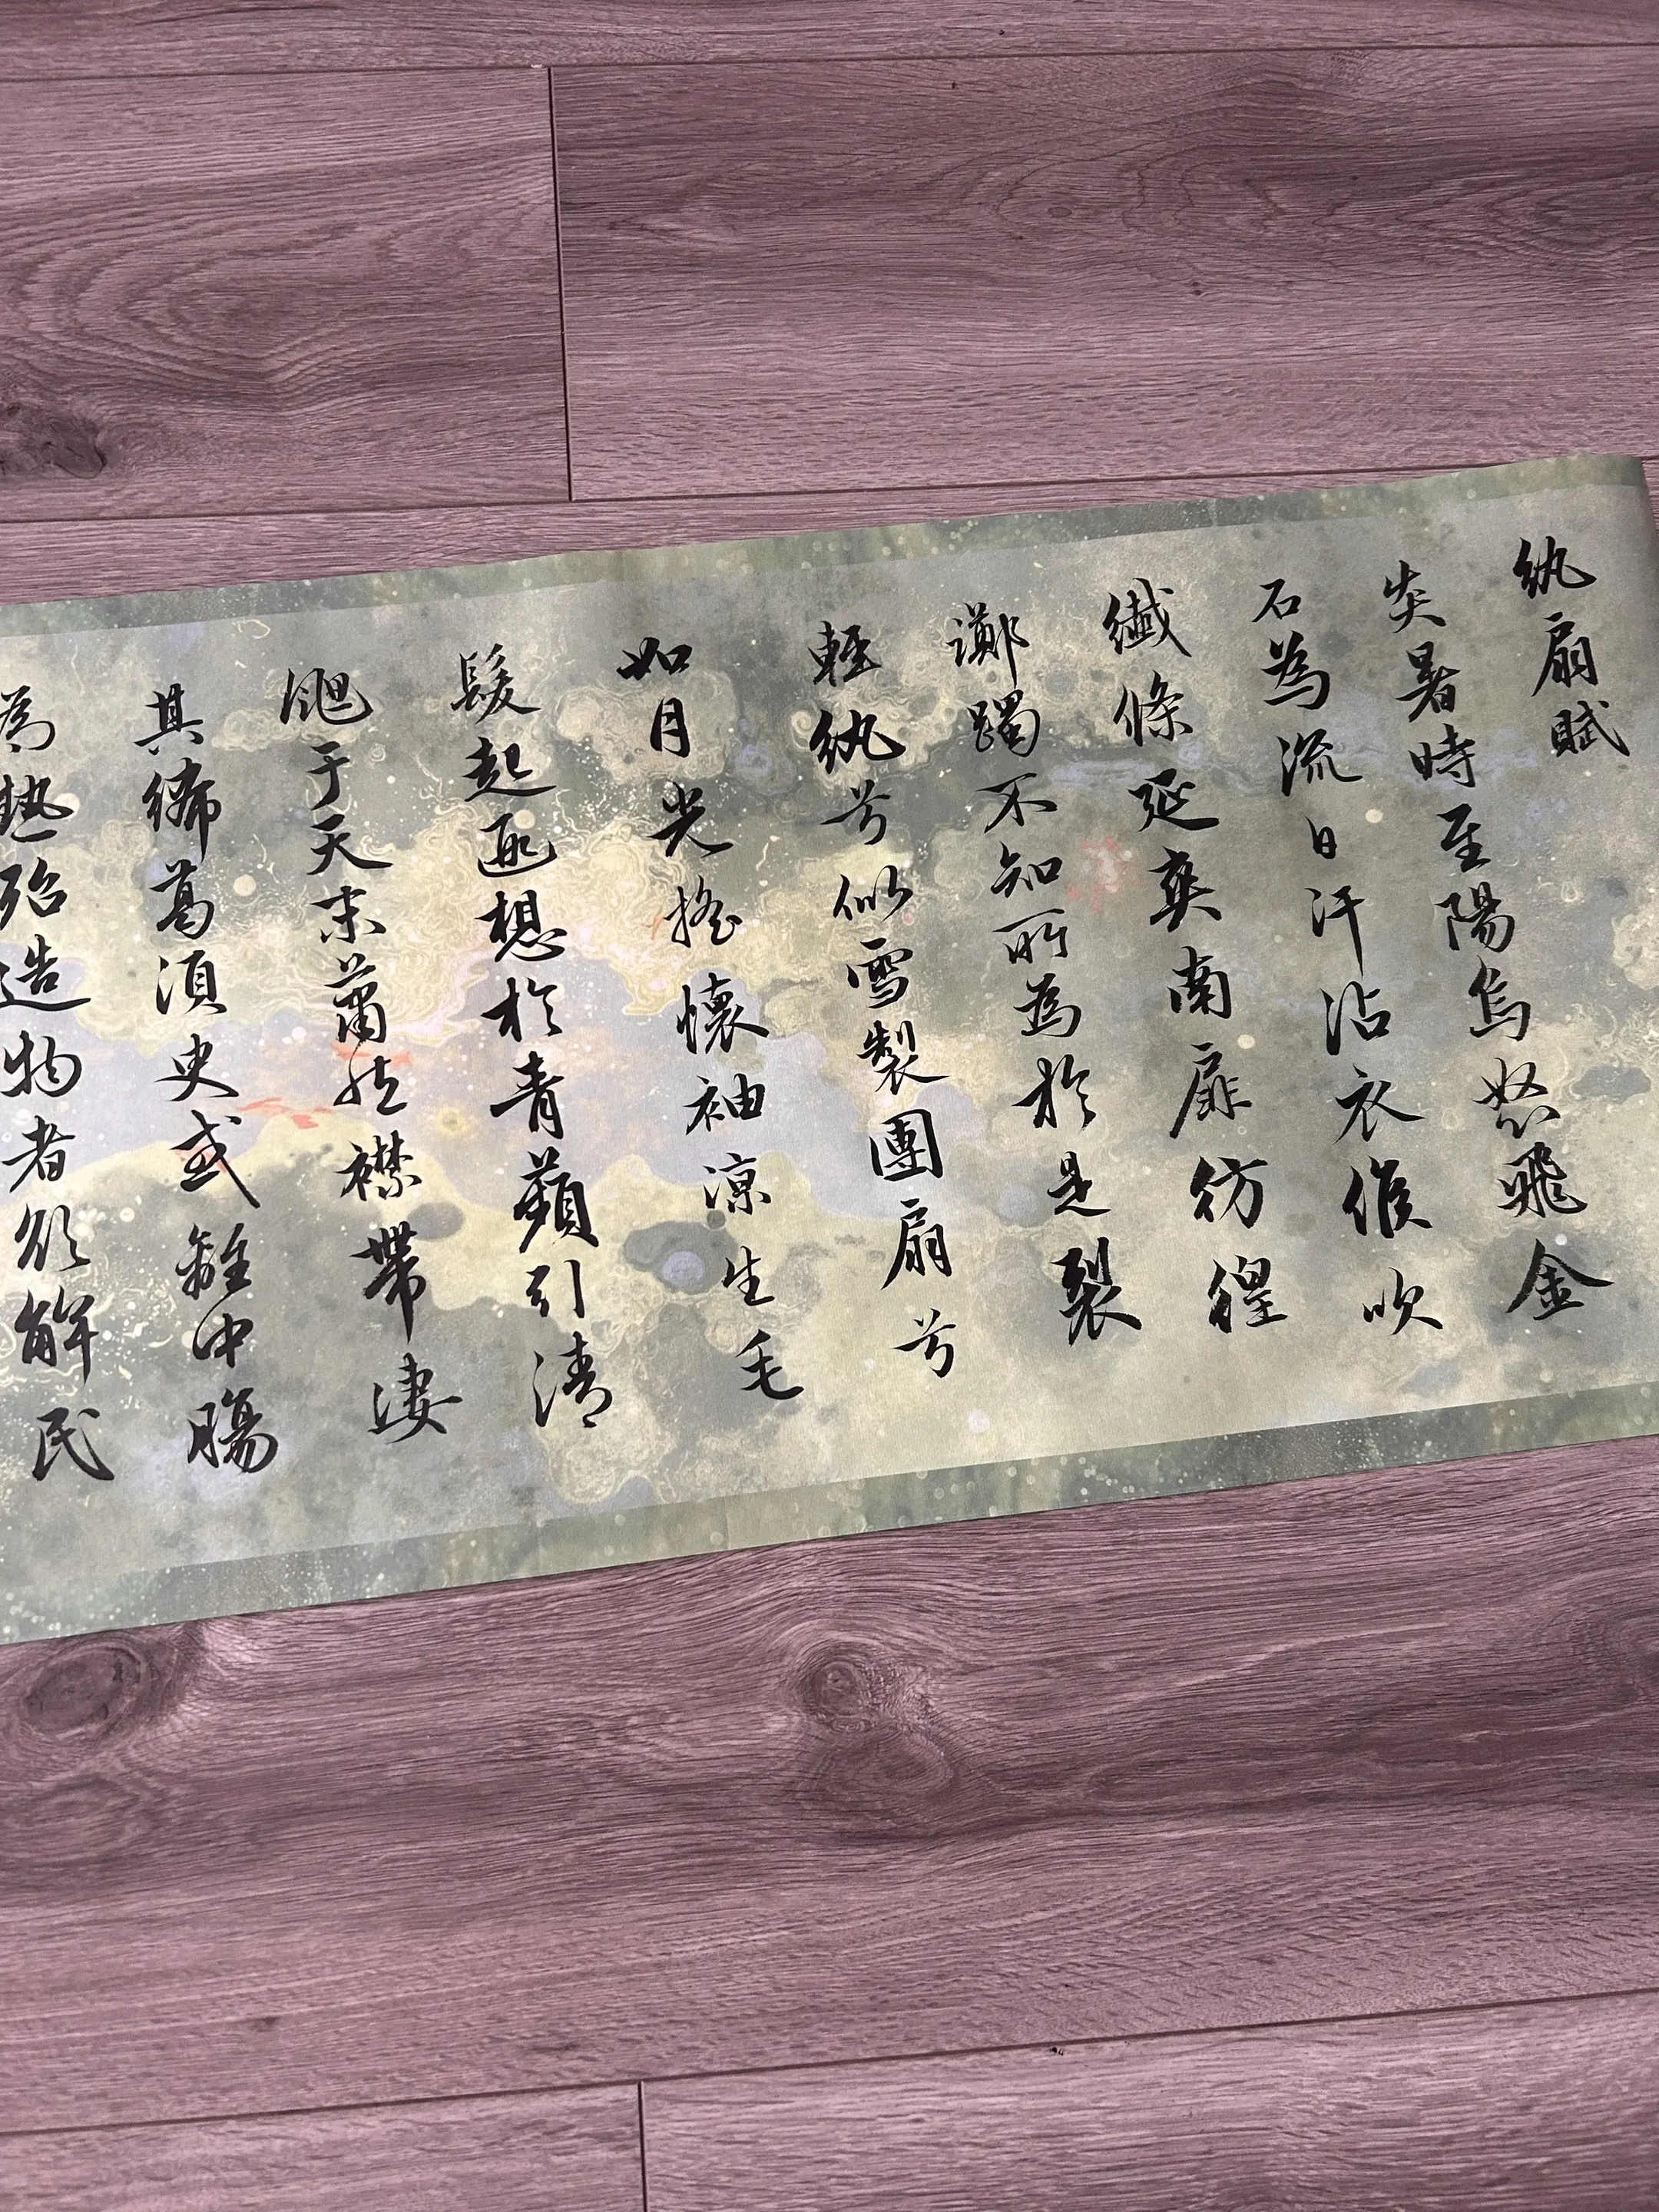 紈扇賦
炎暑時至陽烏怒飛金
石為流日汗沾衣候吹
纖條延爽南扉彷徨
躑躅不知所為於是裂
輕紈兮似雪製團扇兮
如月光搖懷袖涼生毛
髮起遐想於青蘋引清
颸于天末蕭然襟帶淒
其絺葛須臾或離中腸
為熱殆造物者欲解民